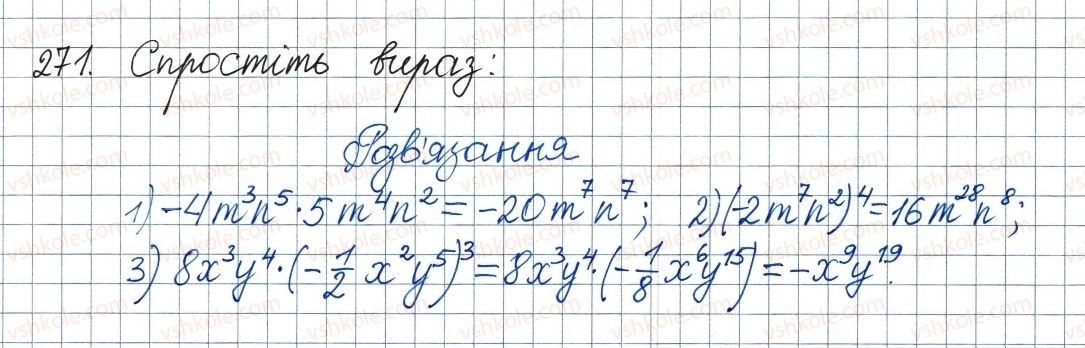 271. Спростіть вираз:
Розв'язання
1) -4m³n⁵·5m⁴n² = -20m⁷n⁷; 2) (-2m⁷n²)⁴ = 16m²⁸n⁸;
3) 8x³y⁴·(-1/2 x²y⁵)³ = 8x³y⁴·(-1/8 x⁶y¹⁵) = -x⁹y¹⁹.